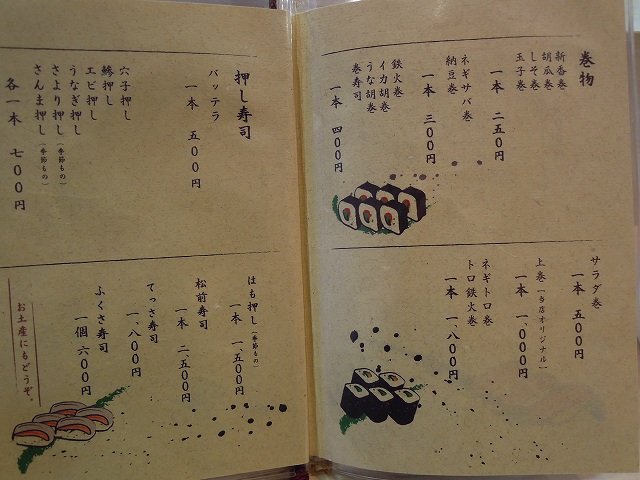 巻物
新香巻
胡瓜巻
しそ巻
玉子巻
一本 二五〇円
ネギサバ巻
納豆巻
一本 三〇〇円
鉄火巻
イカ胡巻
うな胡巻
巻寿司
一本 四〇〇円
サラダ巻
一本 五〇〇円
上巻(当店オリジナル)
一本 一、〇〇〇円
ネギトロ巻
トロ鉄火巻
一本 一、八〇〇円
押し寿司
バッテラ
一本 五〇〇円
穴子押し
鯵押し
エビ押し
うなぎ押し
さより押し(季節もの)
さんま押し(季節もの)
各一本 七〇〇円
はも押し(季節もの)
一本 一、五〇〇円
松前寿司
一本 二、五〇〇円
てっさ寿司
一、八〇〇円
ふくさ寿司
一個 六〇〇円
お土産にもどうぞ